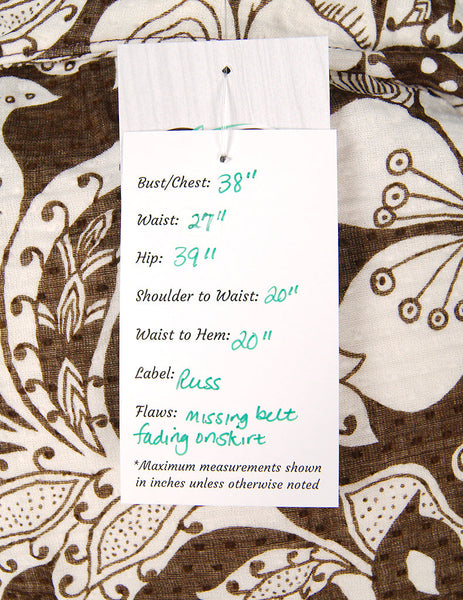 Bust/Chest: 38"
Waist: 27"
Hip: 39"
Shoulder to Waist: 20"
Waist to Hem: 20"
Label: Russ
Flaws: missing belt
fading on skirt
*Maximum measurements shown
in inches unless otherwise noted